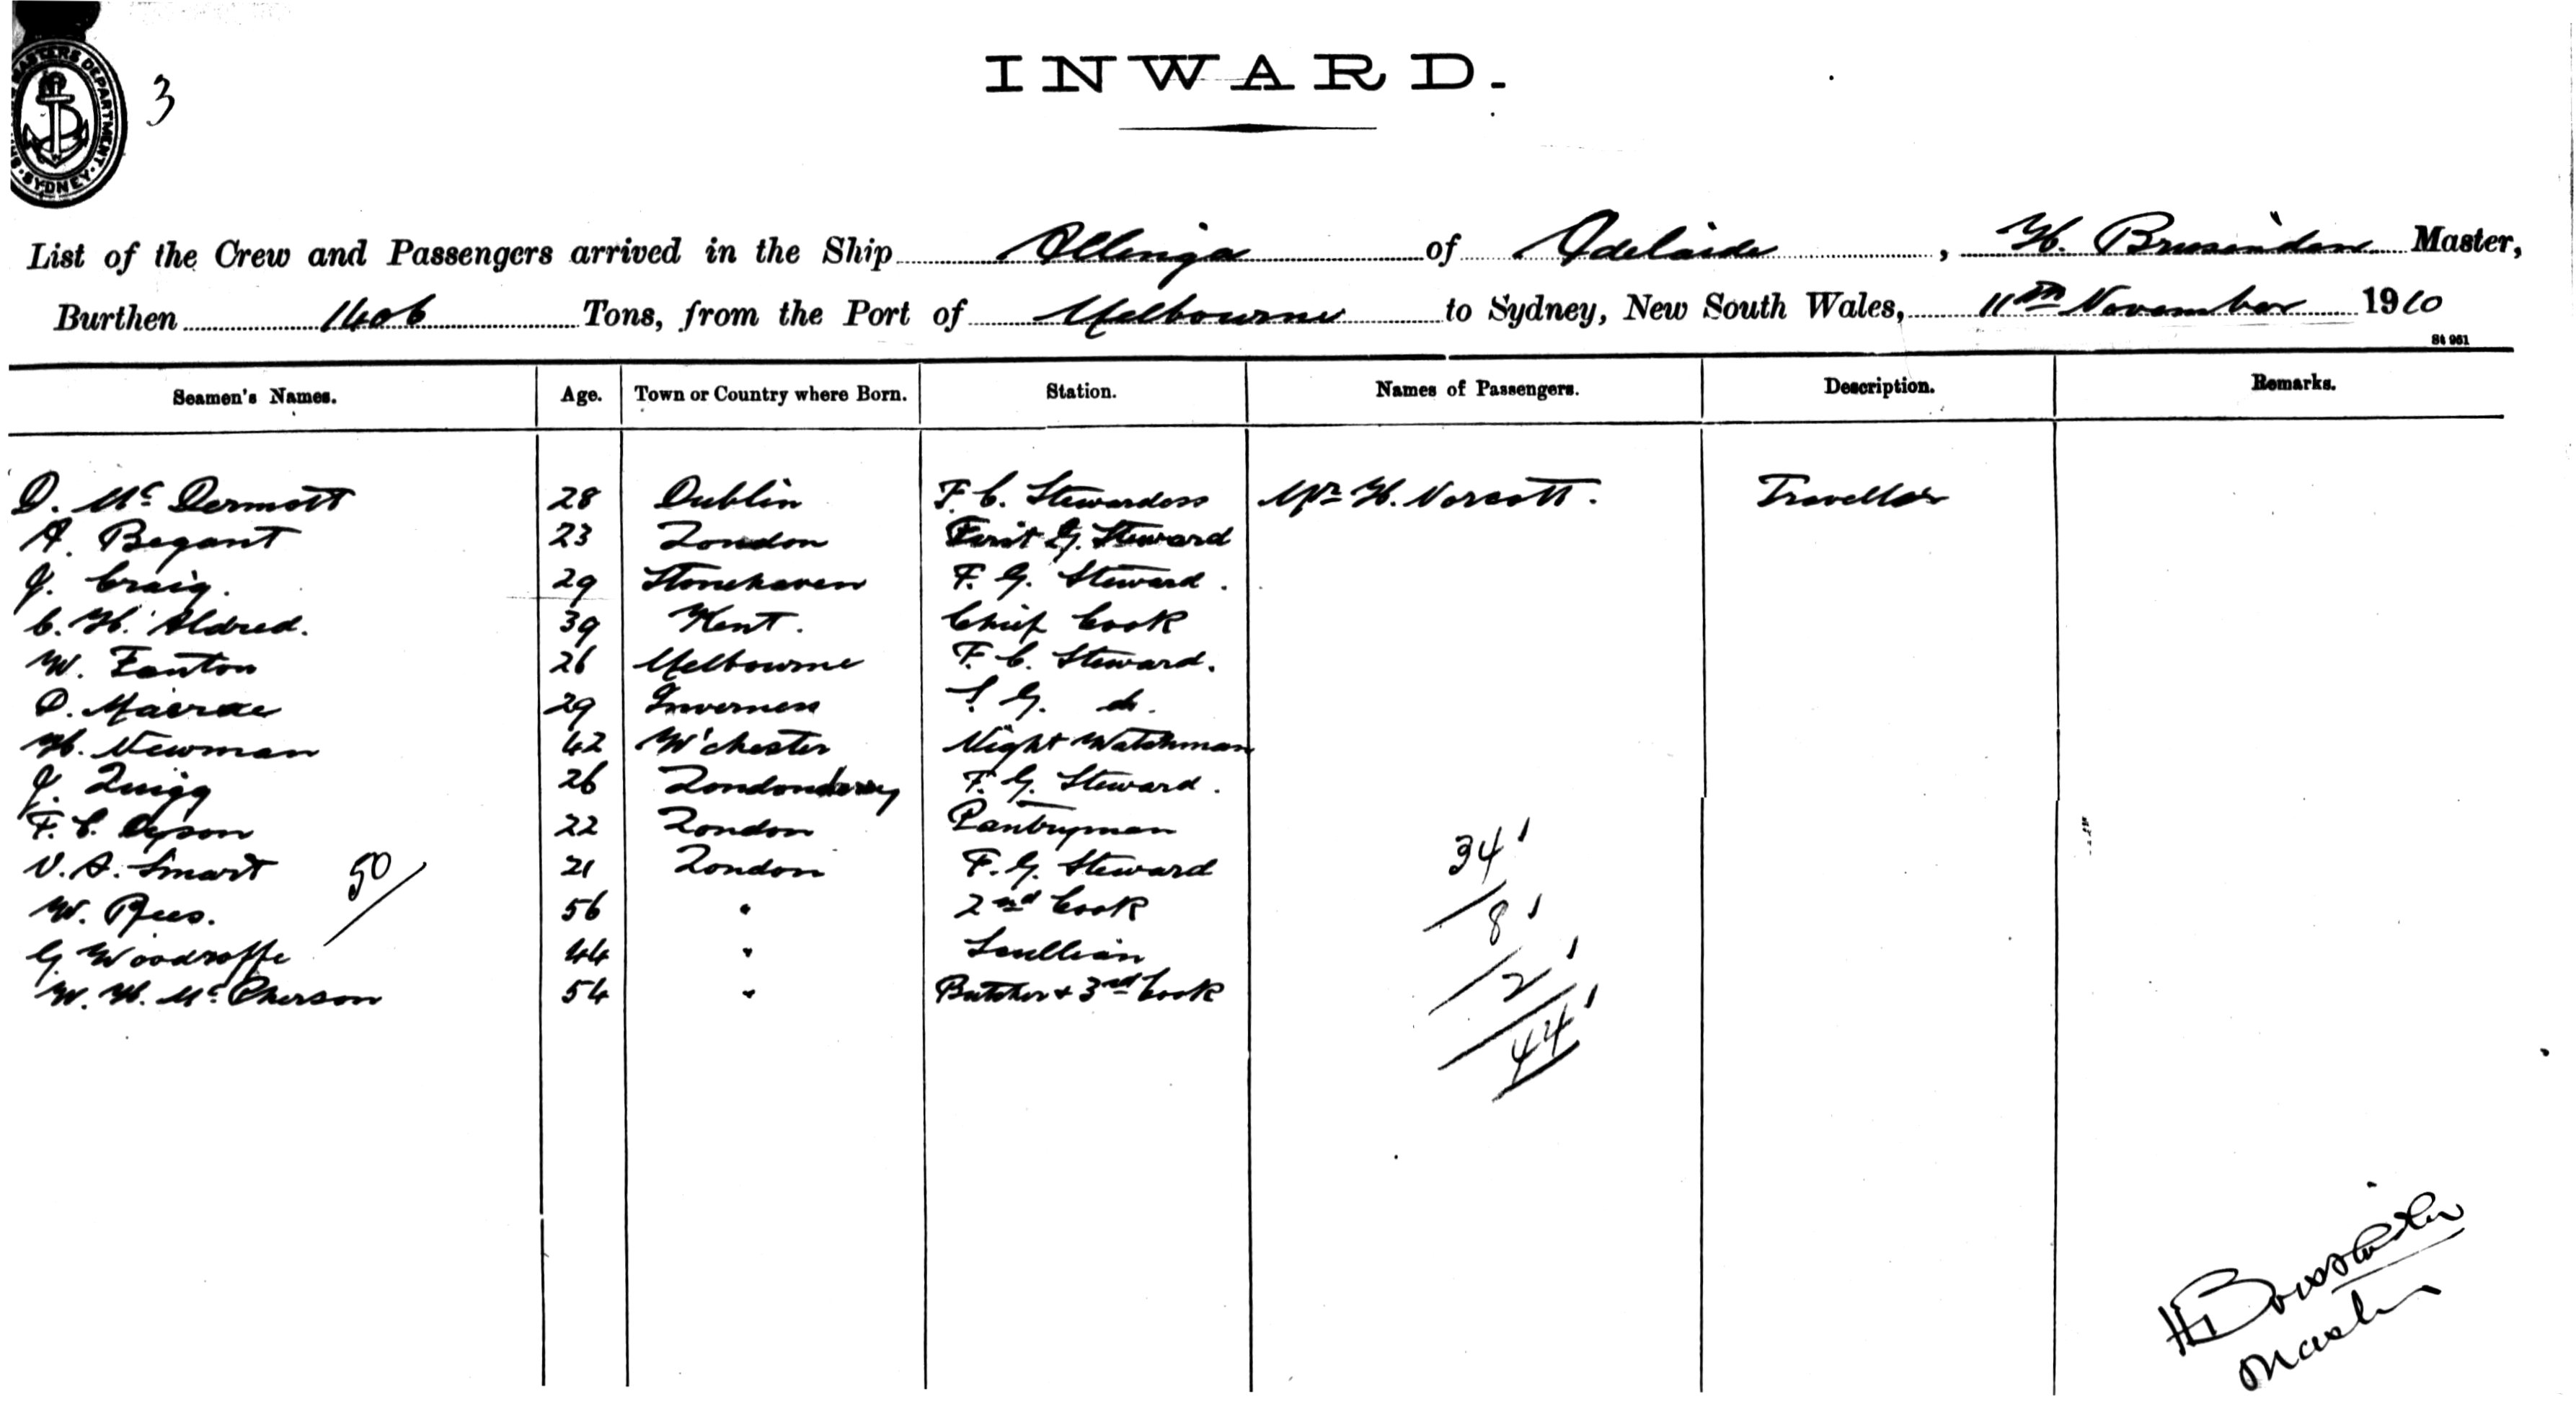 SHIPPING MASTERS DEPARTMENT · SYDNEY ·
3
INWARD.
List of the Crew and Passengers arrived in the Ship Allinga of Adelaide, H. Master,
Burthen 1406 Tons, from the Port of Melbourne to Sydney, New South Wales, 11th November 1910
St 961
Seamen's Names. Age. Town or Country where Born. Station. Names of Passengers. Description. Remarks.
D. McDermott 28 Dublin F. C. Stewardess Mr H. Norcott. Traveller
A. Begant 23 London First G. Steward
J. Craig. 29 Stonehaven F. G. Steward.
C. H. Aldred. 39 Kent. Chief Cook
W. Fanton 26 Melbourne F. C. Steward.
D. Macrae 29 Inverness S. G. do.
H. Newman 42 M'chester Night Watchman
J. Quigg 26 Londonderry F. G. Steward.
F. C. Dyson 22 London Pantryman
V. A. Smart 21 London F. G. Steward
50/
W. Rees. 56 " 2nd Cook
G. Woodroffe 44 " Scullion
W. H. McPherson 54 " Butcher & 3rd Cook
34'
8'
2'
44'
Master